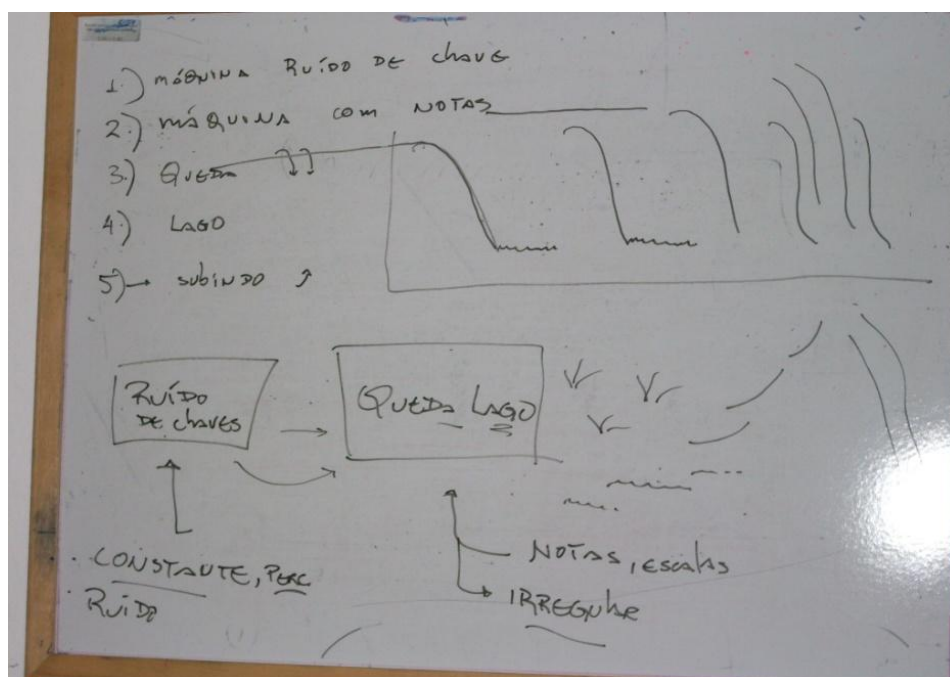 1.) MÁQUINA RUÍDO DE CHAVE
2.) MÁQUINA COM NOTAS
3.) QUEDA
4.) LAGO
5) → SUBINDO
RUÍDO
DE CHAVES
QUEDA LAGO
CONSTANTE, PERC
RUÍDO
NOTAS, ESCALAS
IRREGULAR